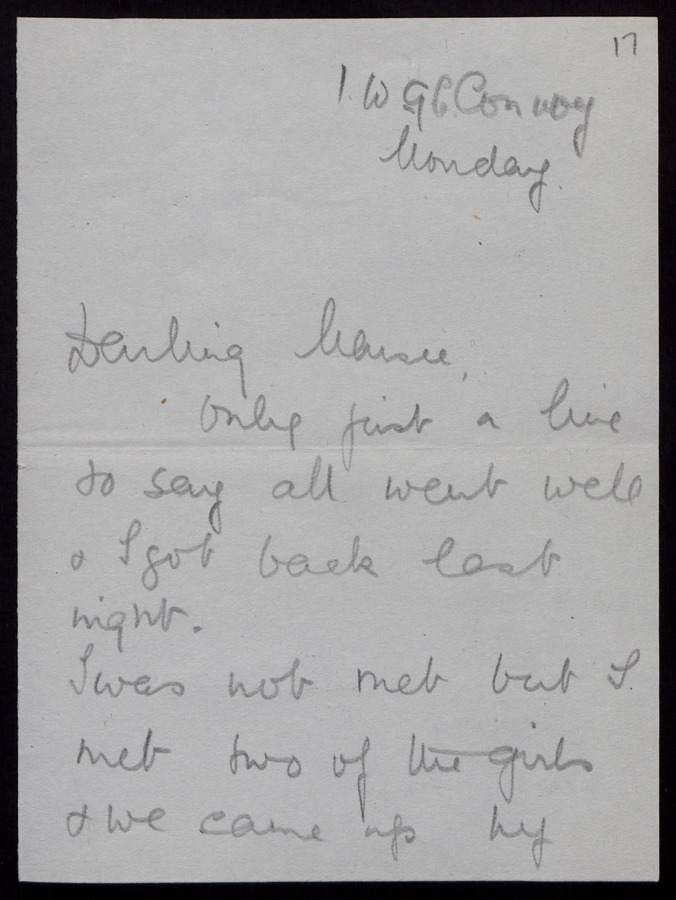 17
1. W G C. Convoy
Monday.
Darling
Only just a line
to say all went well
& I got back last
night.
I was not met but I
met two of the girls
& we came up by